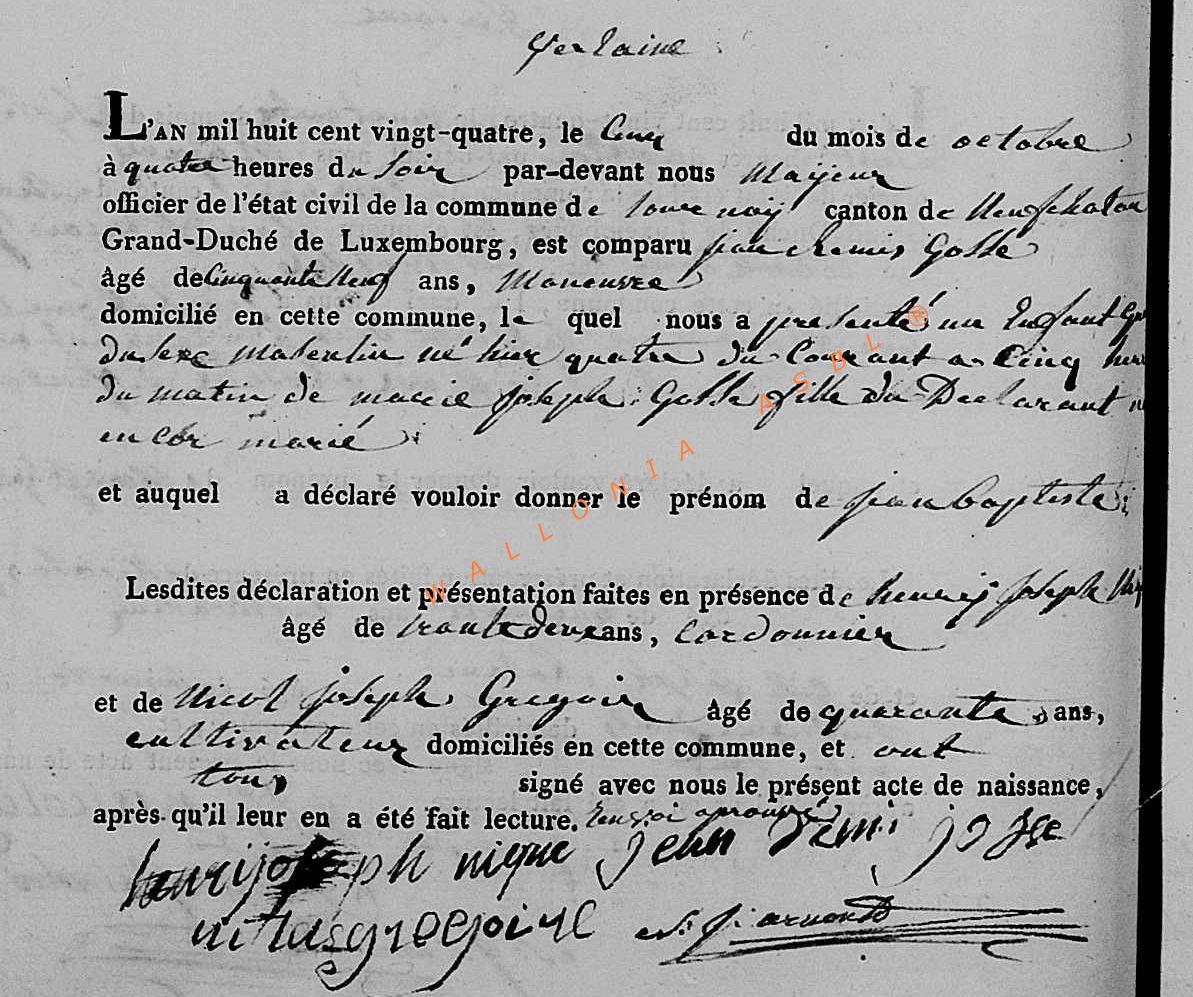 Verlaine
L'AN mil huit cent vingt-quatre, le Cinq du mois de octobre
à quatre heures du Soir par-devant nous Maÿeur
officier de l'état civil de la commune de tournaÿ canton de Neufchateau
Grand-Duché de Luxembourg, est comparu jean Remis Gosse
âgé de Cinquante Neuf ans, Maneuvre
domicilié en cette commune, le quel nous a presenté un Enfant
du sexe Masculin né hier quatre du Courant a Cinq heu
du matin de marie joseph Gosse fille du Declarant n
encor marié
et auquel a déclaré vouloir donner le prénom de jean baptiste
Lesdites déclaration et présentation faites en présence de henrij joseph Niq
âgé de trante deux ans, Cordonnier
et de Nicol joseph Gregoir âgé de quarante ans,
cultivateur domiciliés en cette commune, et ont
tous signé avec nous le présent acte de naissance,
après qu'il leur en a été fait lecture. aprouvé
henrij joseph nique jean remi josse
nicolas gregoire
WALLONIA ASBL ®